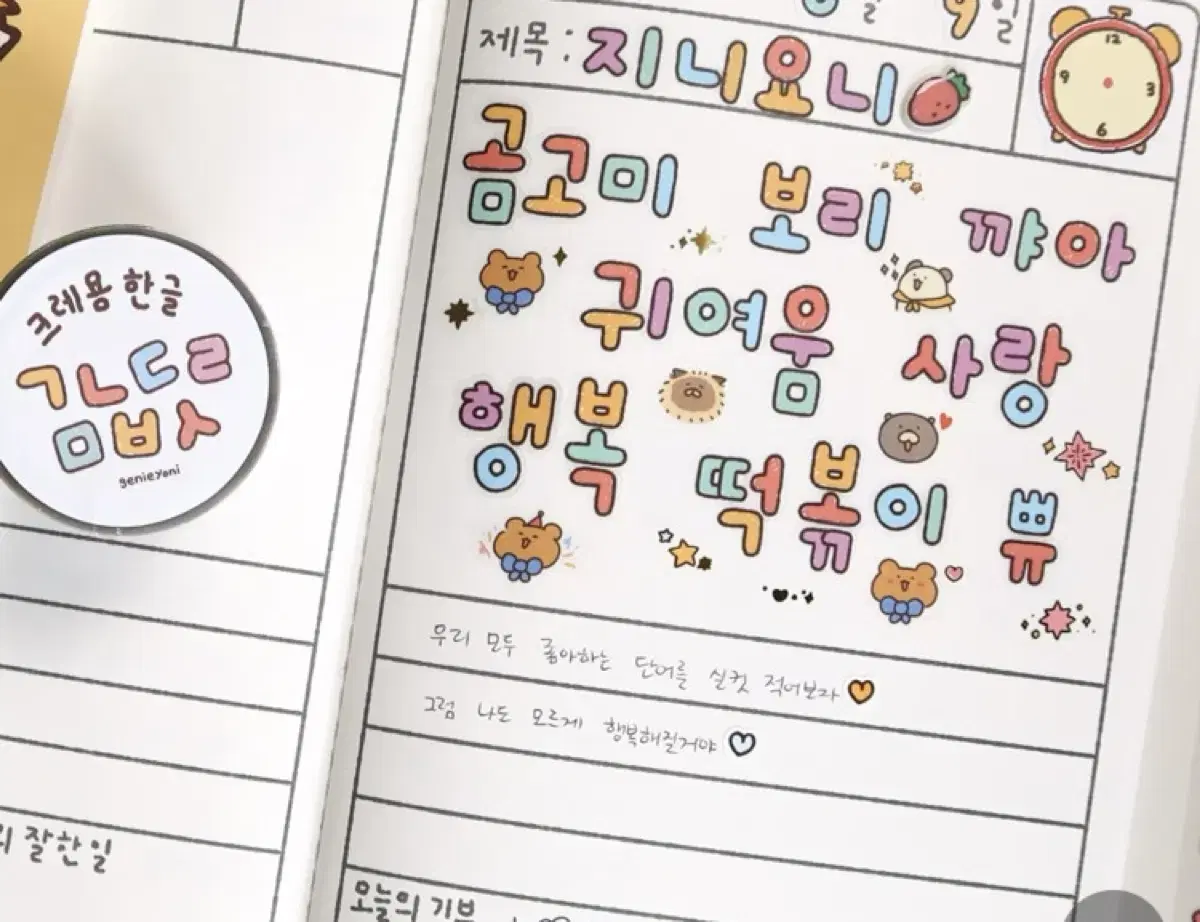 9일
제목: 지니요니
12
9 3
6
곰고미 보리 꺄아
귀여움 사랑
행복 떡볶이 쀼
우리 모두 좋아하는 단어를 실컷 적어보자
그럼 나도 모르게 행복해질거야
오늘의 기부
크레용 한글
김ㄴㄷㄹ
ㅁㅂㅅ
genieyoni
잘한 일